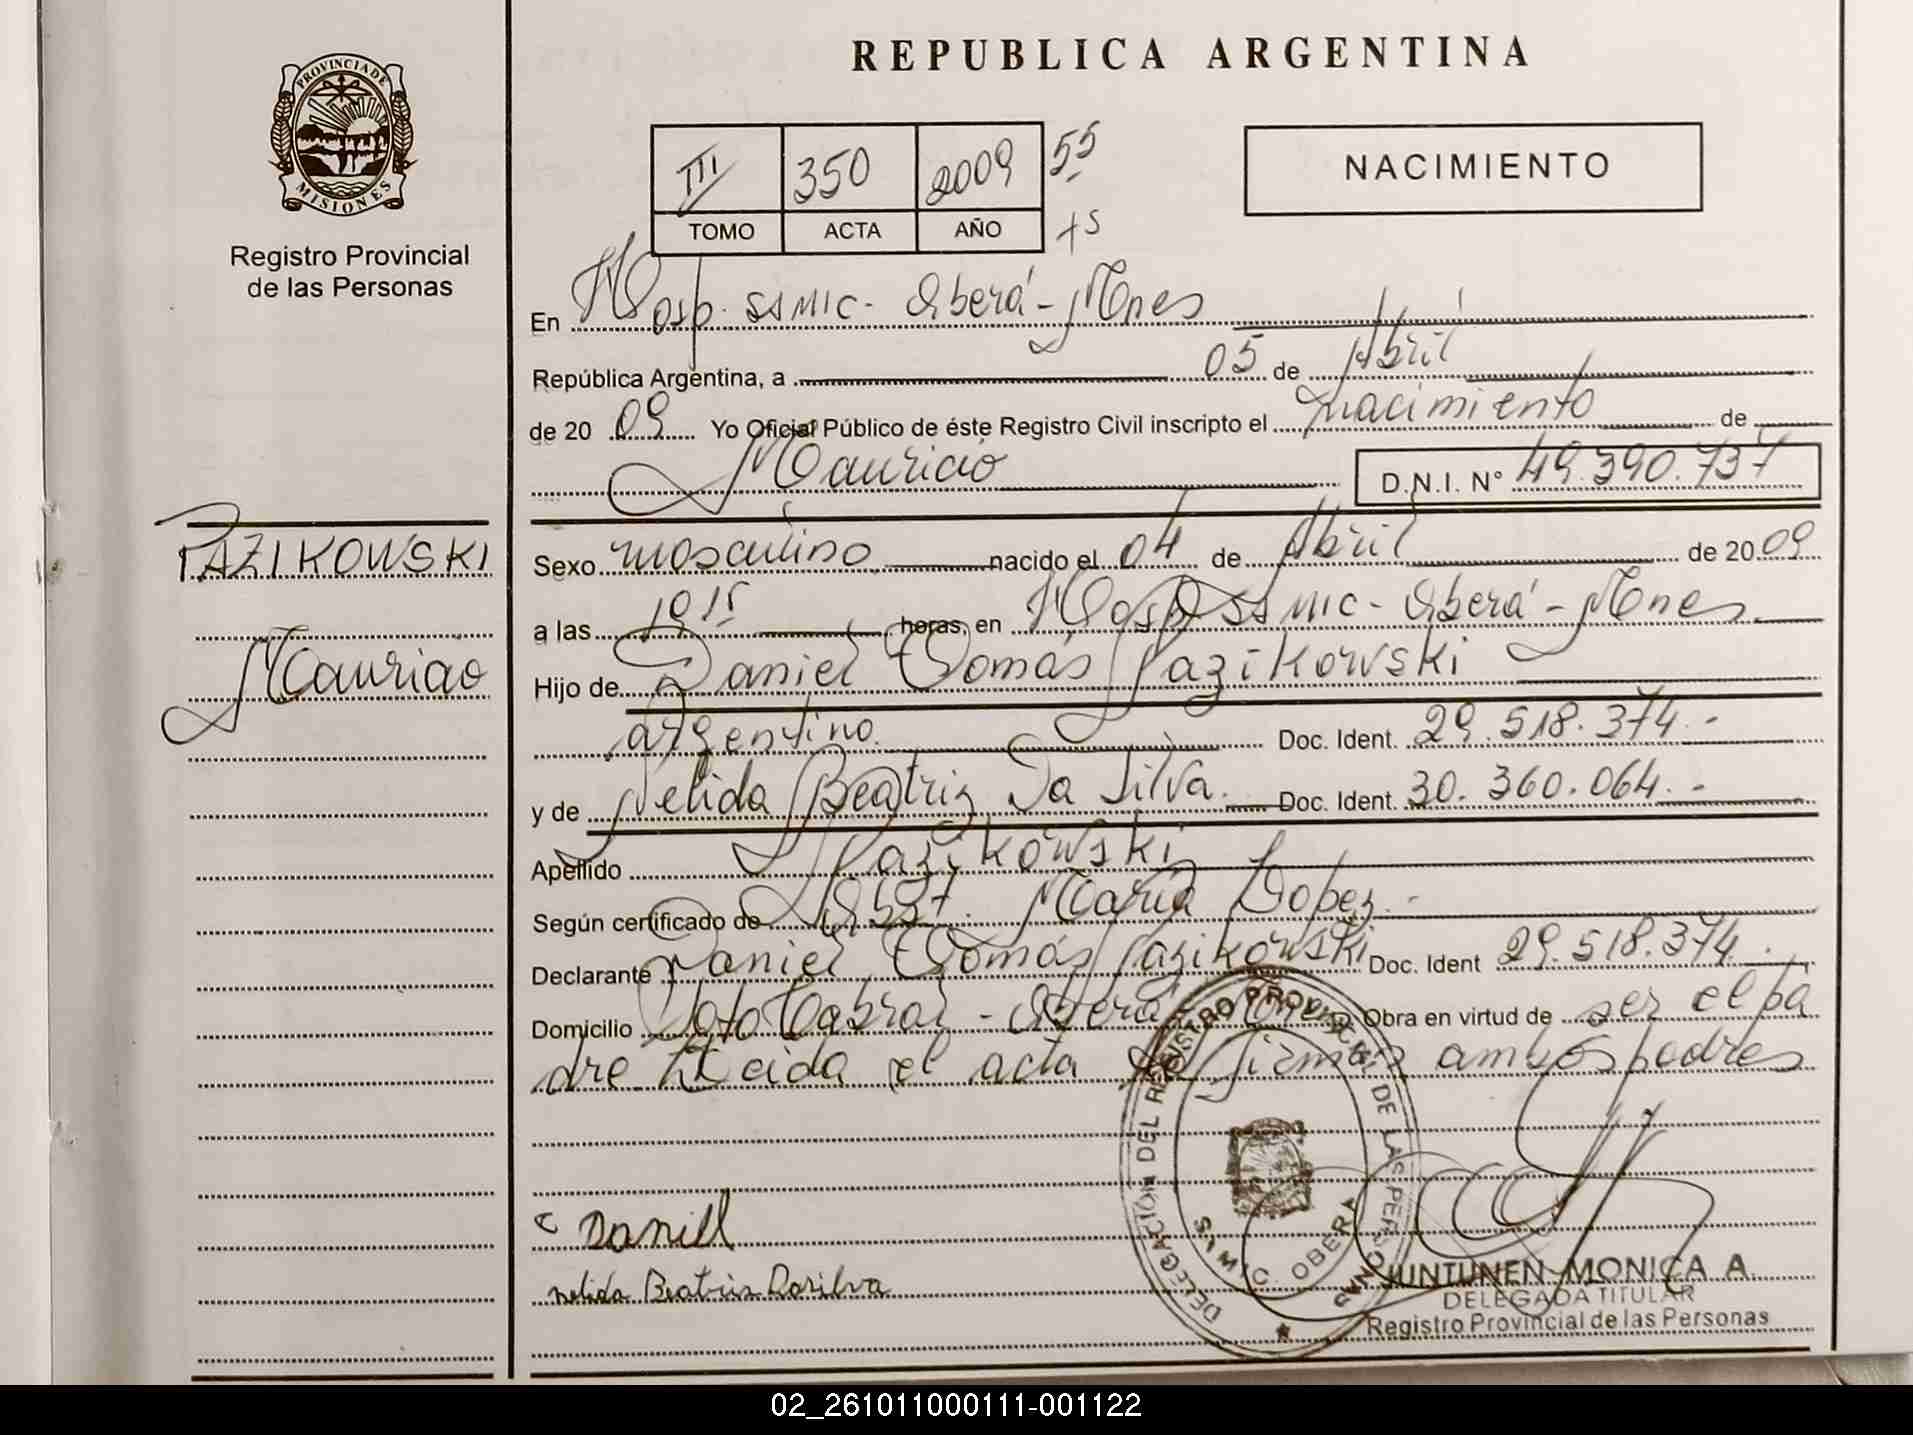 REPUBLICA ARGENTINA
PROVINCIA DE MISIONES
Registro Provincial
de las Personas
III 350 2009 55
TOMO ACTA AÑO +5
NACIMIENTO
En Hosp. SSMIC - Oberá - Mnes
República Argentina, a 05 de Abril
de 20 09 Yo Oficial Público de éste Registro Civil inscripto el nacimiento de
Mauricio D.N.I. N° 49.390.737
PAZIKOWSKI
Mauricio
Sexo masculino nacido el 04 de Abril de 20 09
a las 19 15 horas, en Hosp SSMIC - Oberá - Mnes
Hijo de Daniel Tomás Pazikowski
argentino. Doc. Ident. 29.518.374.-
y de Nelida Beatriz Da Silva. Doc. Ident. 30.360.064.-
Apellido Pazikowski
Según certificado de Maria Lopez.-
Declarante Daniel Tomás Pazikowski Doc. Ident 29.518.374.
Domicilio Cabral - Oberá Obra en virtud de ser el pa
dre Leida el acta firman ambos padres
Daniel
nelida Beatriz Dasilva
DELEGACION DEL REGISTRO PROVINCIAL DE LAS PERSONAS
OBERA
HUNTUNEN MONICA A.
DELEGADA TITULAR
Registro Provincial de las Personas
02_261011000111-001122